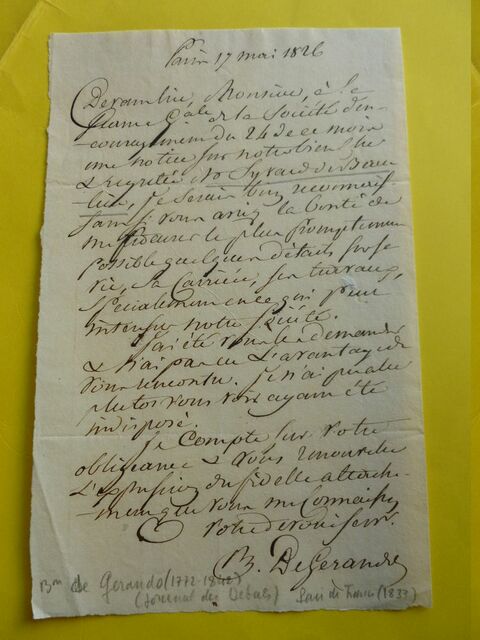 Paris 17 mai 1826
Devant lire, Monsieur, à la
séance Gale de la Société d'en-
couragement du 24 de ce mois
une notice sur notre bien cher
& regretté Mr Gyrard de Beau
lieu, je serais bien reconnais-
sant si vous aviez la bonté de
me procurer le plus promptement
possible quelques détails sur sa
vie, sa carrière, ses travaux,
spécialement en ce qui peut
intéresser notre Société.
J'ai été vous les demander
& n'ai pas eu l'avantage de
vous rencontrer. Je n'ai pu aller
plutôt vous voir ayant été
indisposé.
Je compte sur votre
obligeance & vous renouvelle
l'expression du fidelle attache-
ment que vous me connaissez
votre dévoué serv.
B. DeGerando
Bon de Gerando (1772-1842)
(Journal des Débats) Pair de France (1837)